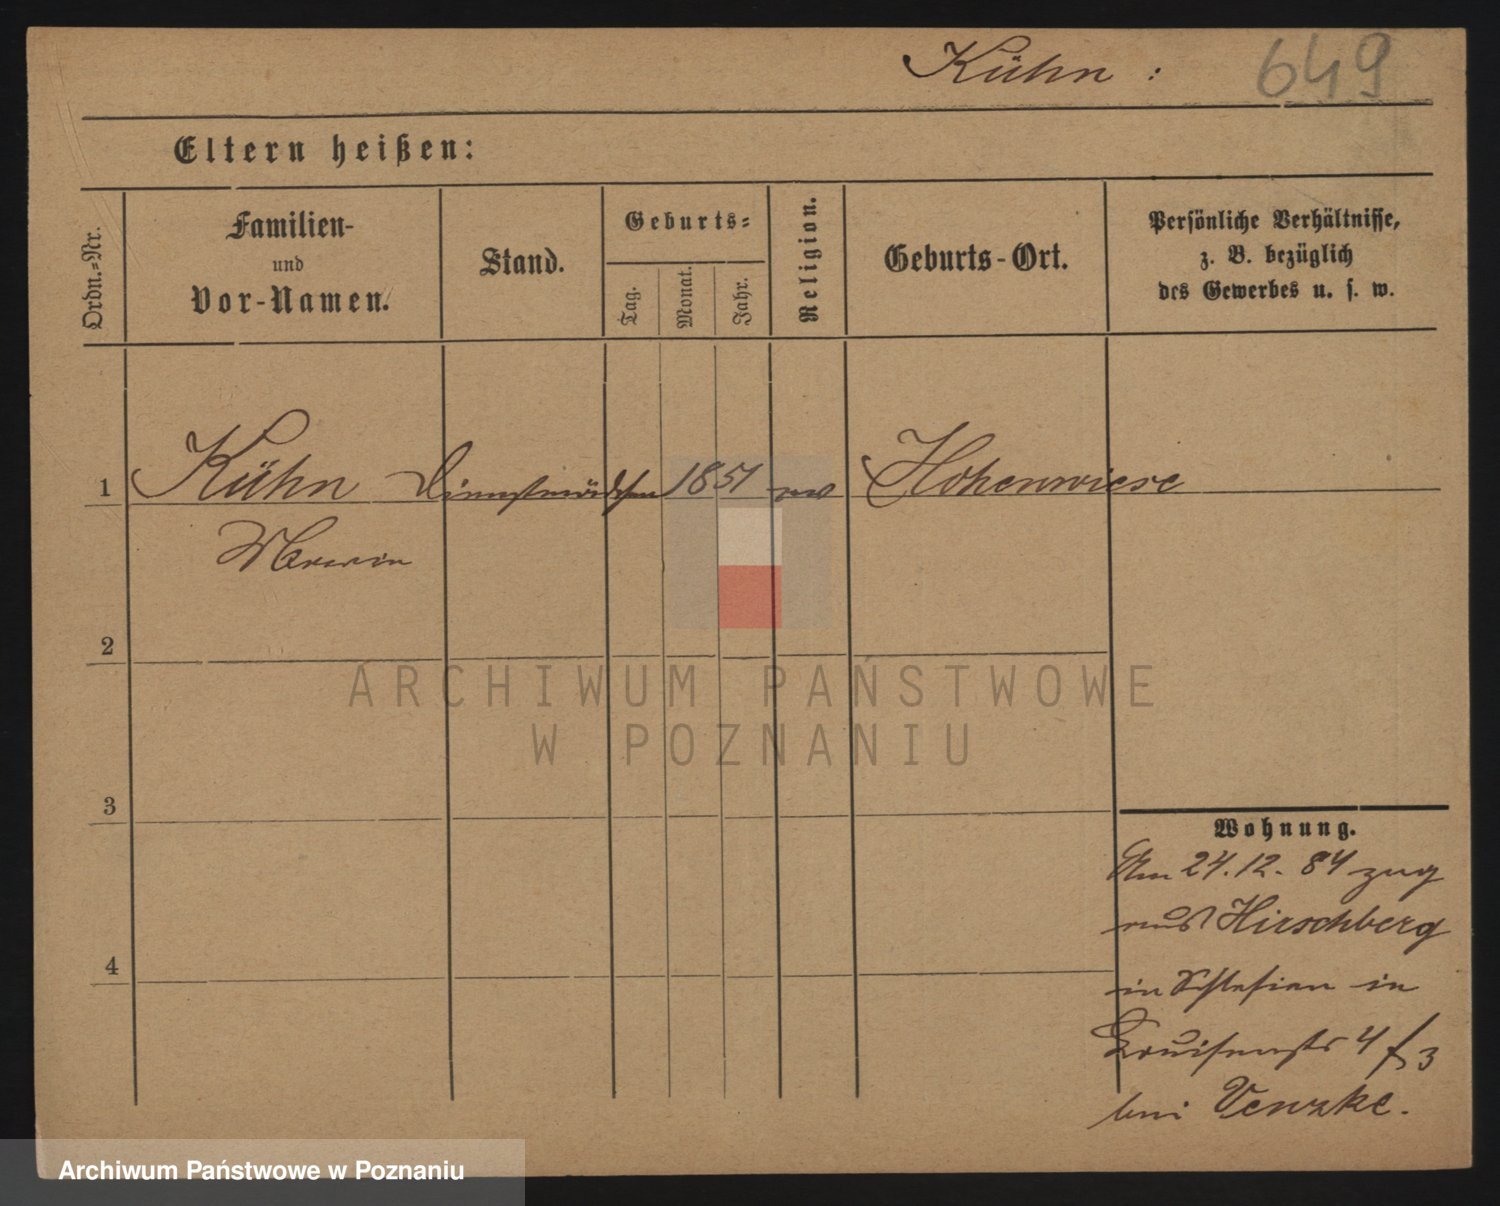 Kühn :
649
Eltern heißen:
Ordn.=Nr.
Familien-
und
Vor-Namen.
Stand.
Geburts=
Tag.
Monat.
Jahr.
Religion.
Geburts-Ort.
Persönliche Verhältnisse,
z. B. bezüglich
des Gewerbes u. s. w.
1 Kühn Dienstmädchen 1851 ev Hohenwiese
2
3
4
Wohnung.
Am 24.12.84 zug
aus Hirschberg
in Schlesien in
Louisenstr 4
bei Venzke.
ARCHIWUM PAŃSTWOWE
W POZNANIU
Archiwum Państwowe w Poznaniu